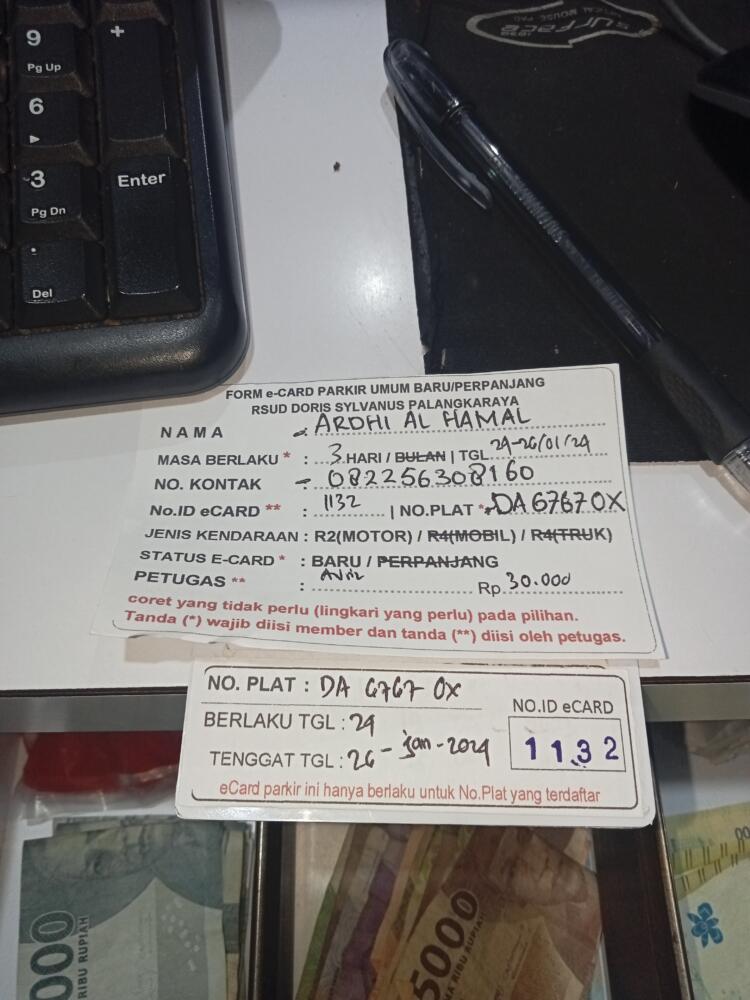 9
Pg Up
+
6
3
Pg Dn
Enter
.
Del
surface
FORM e-CARD PARKIR UMUM BARU/PERPANJANG
RSUD DORIS SYLVANUS PALANGKARAYA
NAMA : ARDHI AL HAMAL
MASA BERLAKU * : 3 HARI / BULAN | TGL 24-26/01/24
NO. KONTAK : 082256308160
No.ID eCARD ** : 1132 | NO.PLAT * DA 6767 OX
JENIS KENDARAAN : R2(MOTOR) / R4(MOBIL) / R4(TRUK)
STATUS E-CARD * : BARU / PERPANJANG
PETUGAS ** : Rp. 30.000
coret yang tidak perlu (lingkari yang perlu) pada pilihan.
Tanda (*) wajib diisi member dan tanda (**) diisi oleh petugas.
NO. PLAT : DA 6767 OX
BERLAKU TGL : 24
TENGGAT TGL : 26 - jan - 2024
NO.ID eCARD
1132
eCard parkir ini hanya berlaku untuk No.Plat yang terdaftar
000
RIBU RUPIAH
5000
RIBU RUPIAH